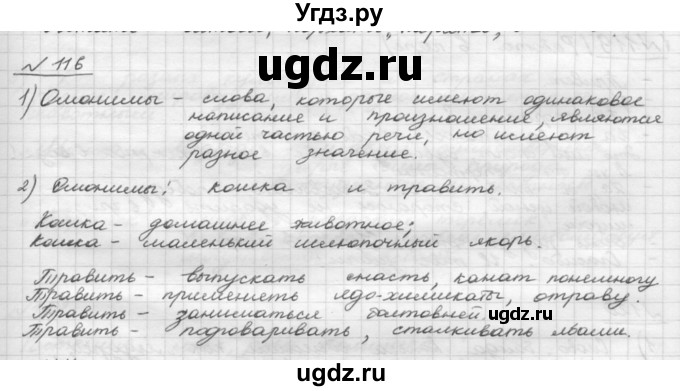 Угдз.ру
ugdz.ru
№ 116
1) Омонимы - слова, которые имеют одинаковое
написание и произношение, являются
одной частью речи, но имеют
разное значение.
ugdz.ru
2) Омонимы: кошка и травить.
Кошка - домашнее животное;
Кошка - маленький шлюпочный якорь.
ugdz.ru
Травить - выпускать снасть, канат понемногу
Травить - применять ядо-химикаты, отраву.
Травить - заниматься болтовнёй.
Травить - подговаривать, сталкивать лбами.
ugdz.ru
Угдз.ру